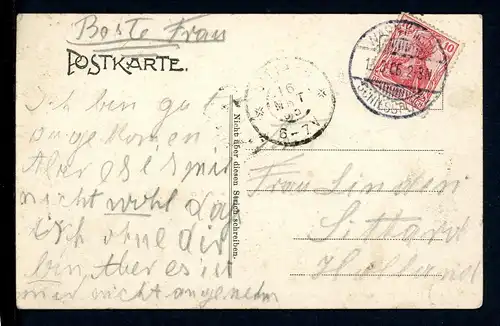 Beste Frau
POSTKARTE.
Ich bin gut
Aber es ist mir
nicht wohl das
ich ohne dir
bin, Aber es ist
mir nicht angenehm
Nicht über diesen Strich schreiben.
16
6-7N
10
Frau Linden
Sittard
Holland